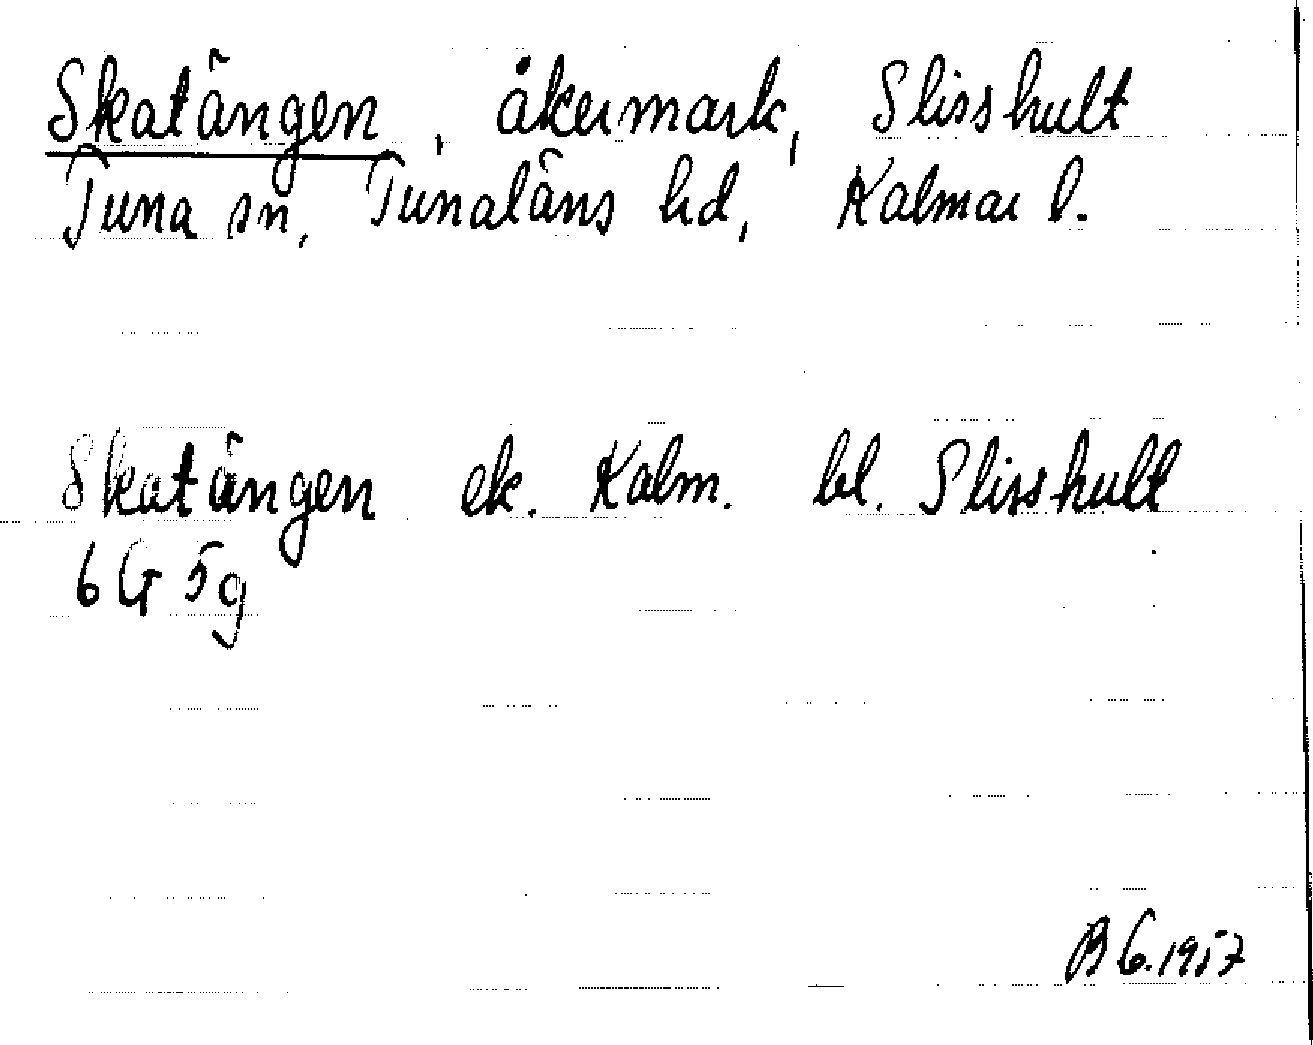 Skatängen, åkermark, Slisshult
Tuna sn, Tunaläns hd, Kalmar l.
Skatängen ek. Kalm. bl. Slisshult
6 G 5g
B G. 1957